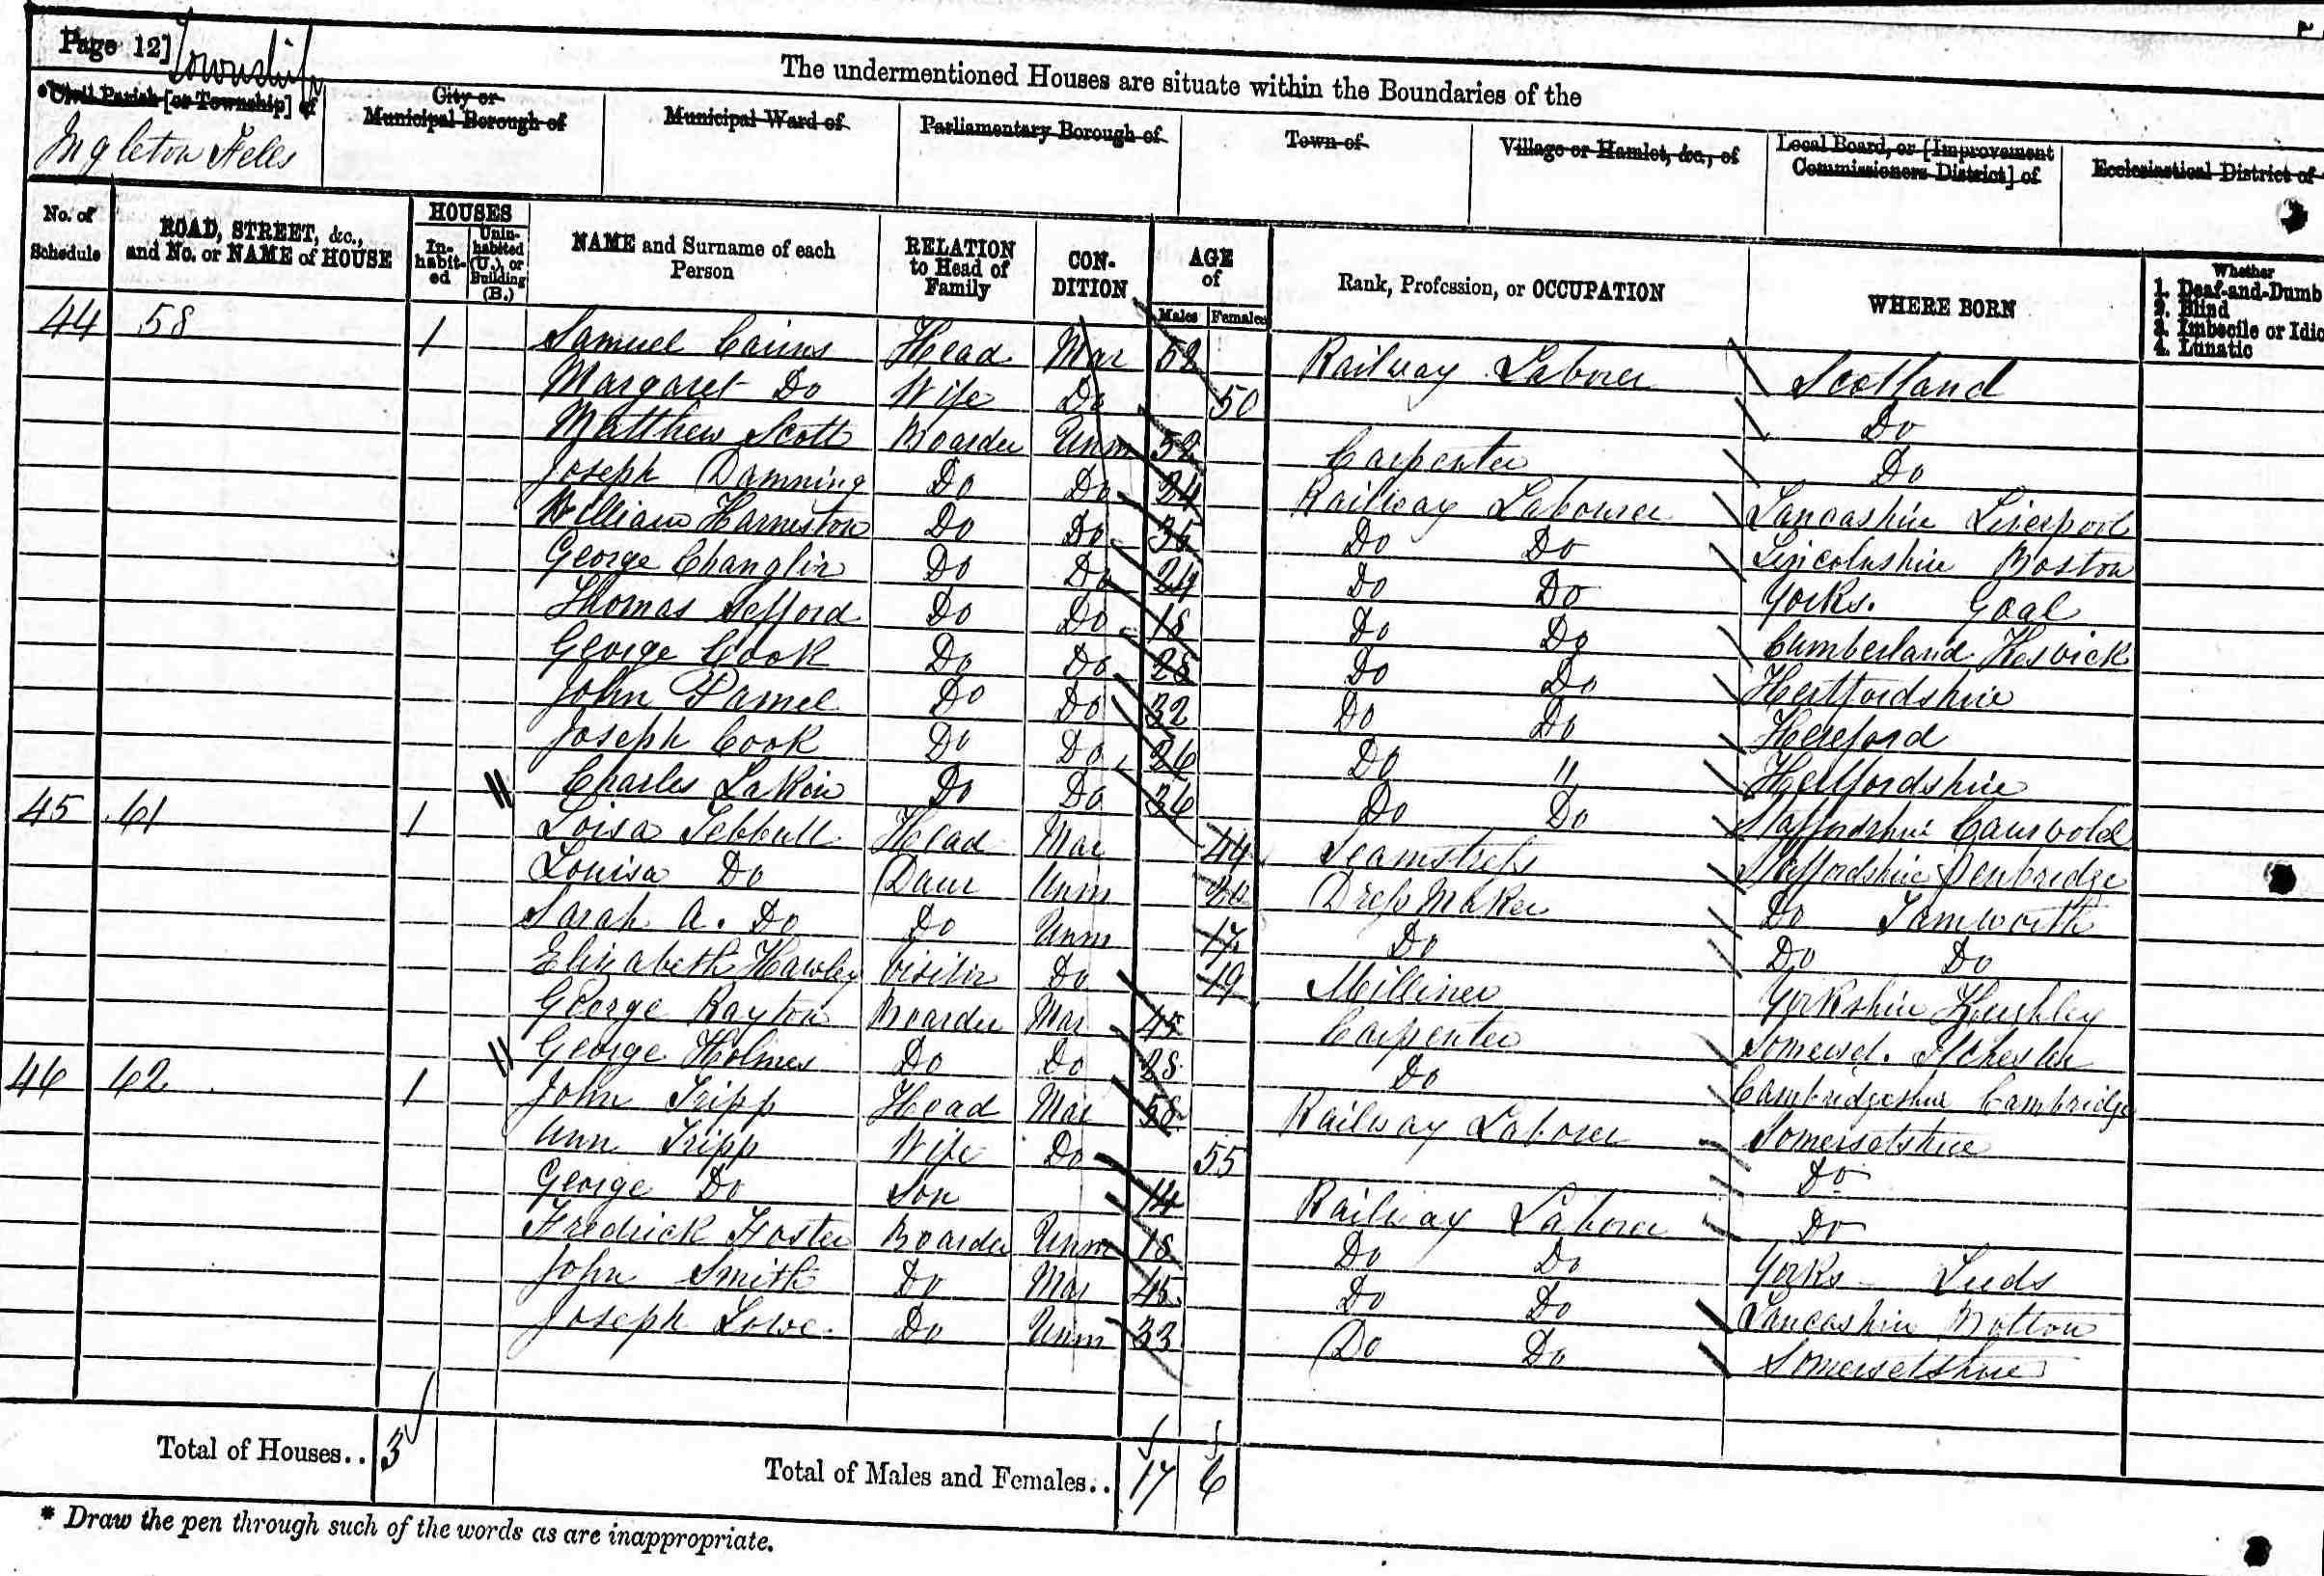 Page 12] Township
The undermentioned Houses are situate within the Boundaries of the
*Civil Parish [or Township] of
City or Municipal Borough of
Municipal Ward of
Parliamentary Borough of
Town of
Village or Hamlet, &c., of
Local Board, or [Improvement Commissioners District] of
Ecclesiastical District of
Ingleton Fells
No. of Schedule
ROAD, STREET, &c., and No. or NAME of HOUSE
HOUSES
In-habit-ed
Unin-habited (U.), or Building (B.)
NAME and Surname of each Person
RELATION to Head of Family
CON-DITION
AGE of
Males Females
Rank, Profession, or OCCUPATION
WHERE BORN
Whether
1. Deaf-and-Dumb
2. Blind
3. Imbecile or Idio
4. Lunatic
44 58 1 Samuel Cairns Head Mar 52 Railway Laborer Scotland
Margaret Do Wife Do 50 Do
Matthew Scott Boarder Unm 52 Carpenter Do
Joseph Damning Do Do 24 Railway Labourer Lancashire Liverpool
William Harneston Do Do 35 Do Do Lincolnshire Boston
George Changlin Do Do 24 Do Do Yorks. Goal
Thomas Sefford Do Do 18 Do Do Cumberland Keswick
George Cook Do Do 28 Do Do Hertfordshire
John Parnel Do Do 32 Do Do Hereford
Joseph Cook Do Do 26 Do " Hertfordshire
Charles Lakin Do Do 36 Do Do Staffordshire
45 61 1 Loisa Tebbutt Head Mar 44 Seamstress Staffordshire Penkridge
Louisa Do Daur Unm 20 Dress Maker Do Tamworth
Sarah A. Do Do Unm 17 Do Do Do
Elizabeth Hawley Visitor Do 19 Milliner Yorkshire Keighley
George Rayton Boarder Mar 45 Carpenter Somerset. Ilchester
George Holmes Do Do 28 Do Cambridgeshire Cambridge
46 62 1 John Tripp Head Mar 58 Railway Laborer Somersetshire
Ann Tripp Wife Do 55 Do
George Do Son 14 Railway Laborer Do
Fredrick Foster Boarder Unm 18 Do Do Yorks Leeds
John Smith Do Mar 45 Do Do Lancashire Bolton
Joseph Lowe Do Unm 33 Do Do Somersetshire
Total of Houses.. 3
Total of Males and Females.. 17 6
* Draw the pen through such of the words as are inappropriate.